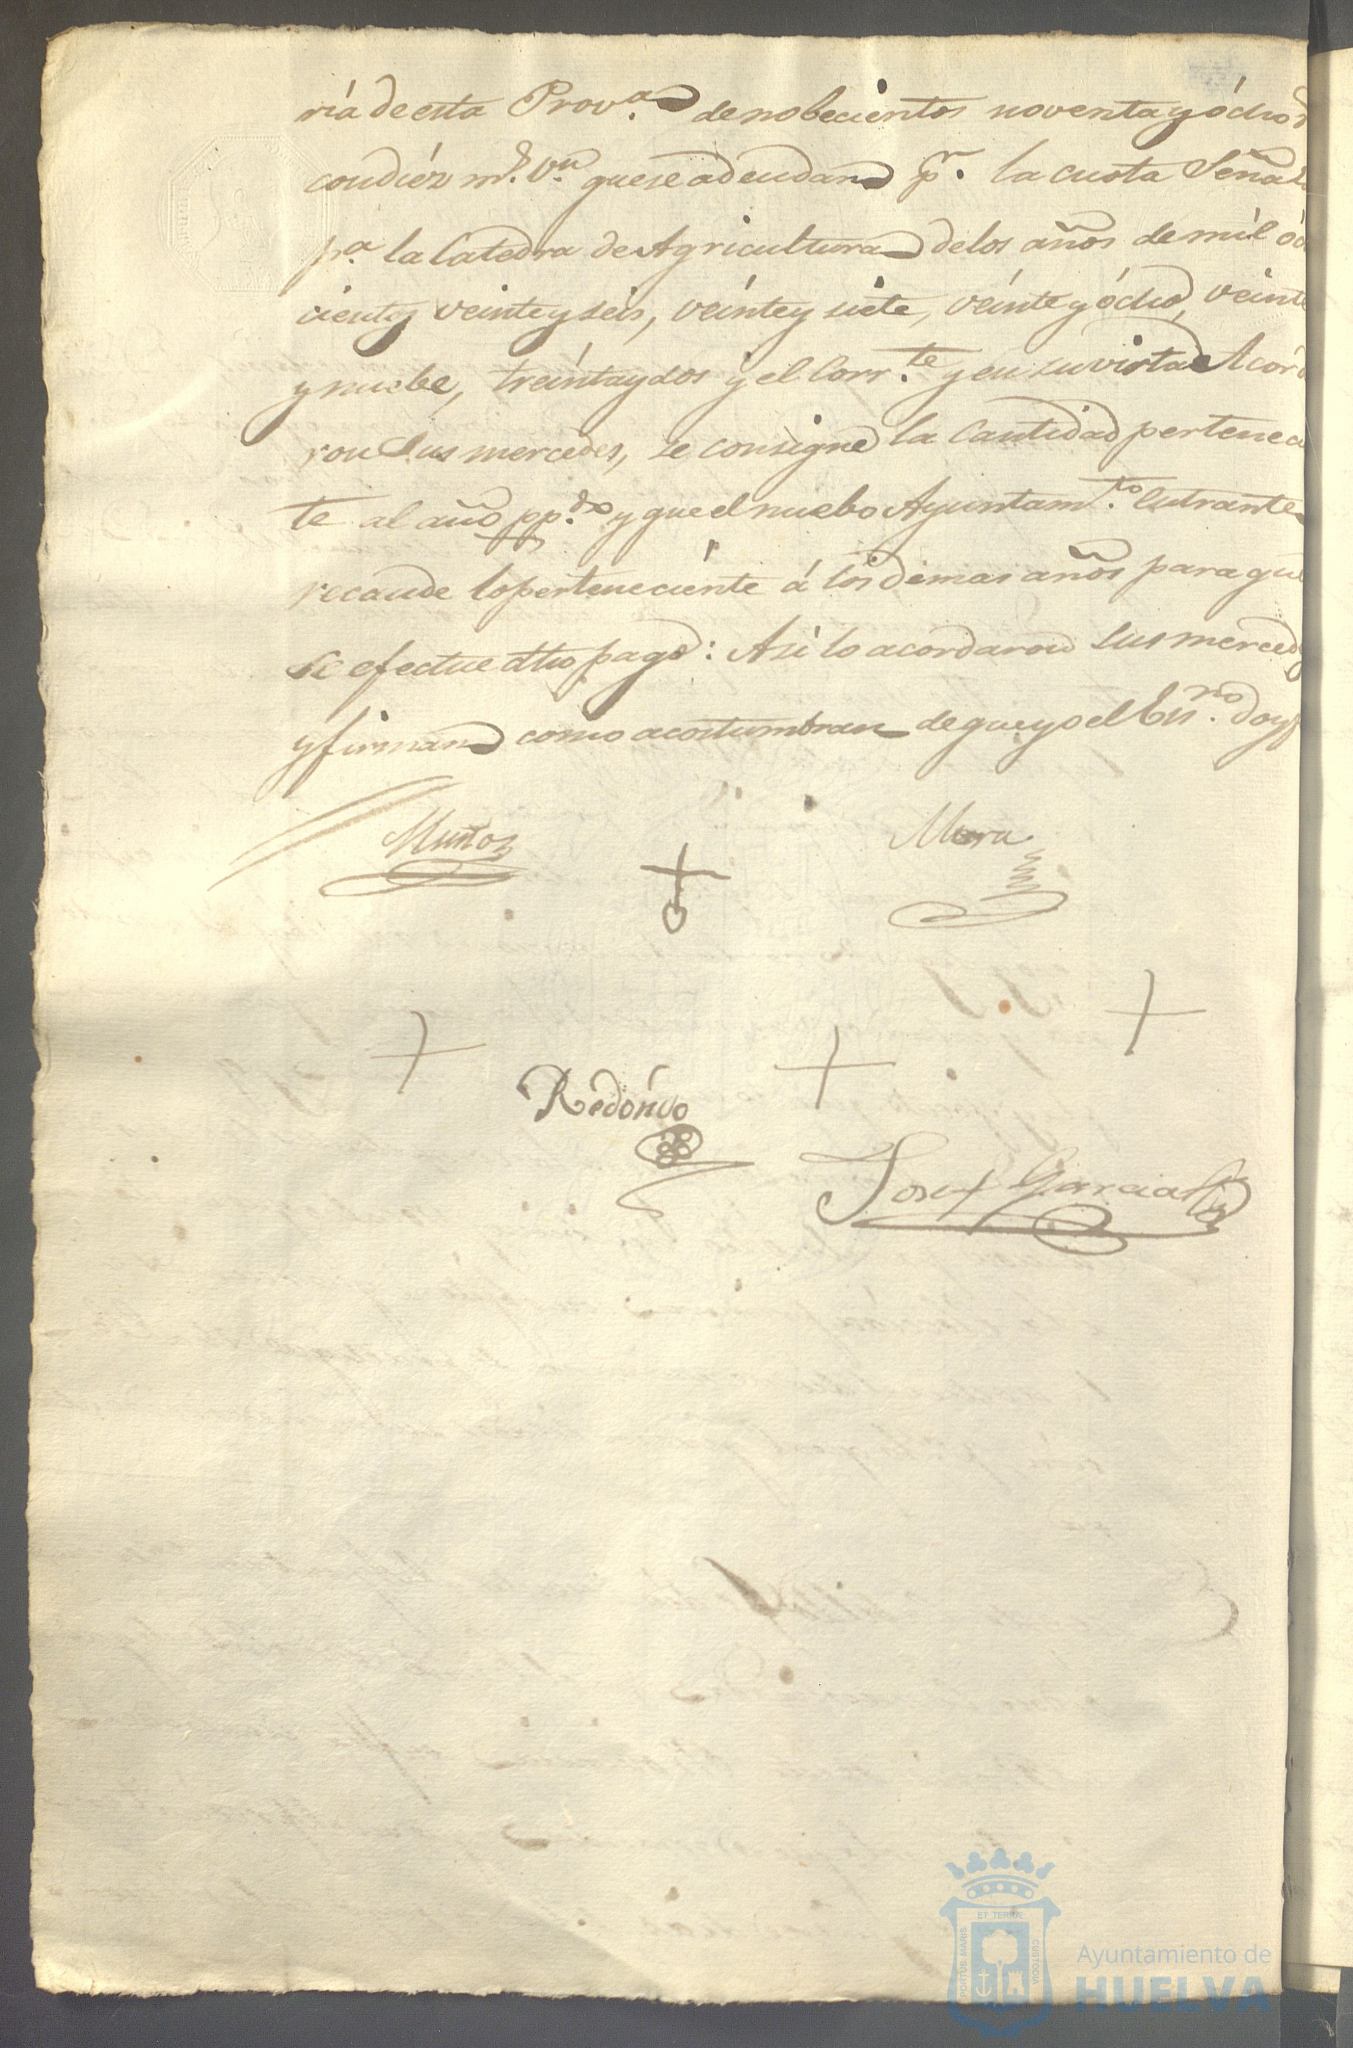 ría de esta Prov.a de nobecientos noventa y ócho r
con diéz m.s v.n que se adeudan p.r la cuota Señal
p.a la Catedra de Agricultura de los años de mil óc
cientos veinte y seis, veinte y siete, veinte y ócho, veinte
y nuebe, treinta y dos y el Corr.te y en su vista Acorda
ron Sus mercedes, se consigne la Cantidad pertenecien
te al año pp.do y que el nuebo Ayuntam.to Entrante
recaude lo perteneciénte á los demas años para que
se efectue dho pago: Asi lo acordaron sus mercedes
y firman como acostumbran de que yo el Ess.no doy f
Muñoz
Mora
Redondo
Josef Garcia
PORTUS MARIS ET TERRAE CUSTODIA
Ayuntamiento de
HUELVA